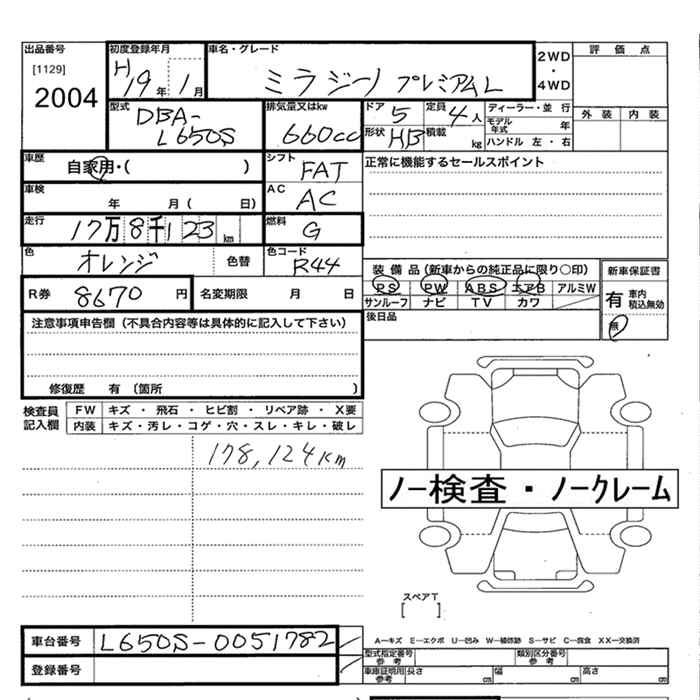 出品番号
[1129]
2004
初度登録年月
H19年1月
車名・グレード
ミラジーノ プレミアムL
2WD
・
4WD
評価点
外装 内装
型式
DBA-
L650S
排気量又はkw
660cc
ドア 5
定員 4人
形状 HB
積載 kg
ディーラー・並行
モデル年式 年
ハンドル 左・右
車歴
自家用・( )
シフト
FAT
車検
年 月( 日)
AC
AC
正常に機能するセールスポイント
走行
17万8千123km
燃料
G
色
オレンジ 色替
色コード
R44
装備品(新車からの純正品に限り○印)
PS PW ABS エアB アルミW
サンルーフ ナビ TV カワ
新車保証書
有 車内積込無効
無
R券 8670円
名変期限 月 日
後日品
注意事項申告欄(不具合内容等は具体的に記入して下さい)
修復歴 有 〔箇所 〕
検査員記入欄
FW キズ・飛石・ヒビ割・リペア跡・X要
内装 キズ・汚レ・コゲ・穴・スレ・キレ・破レ
178,124km
ノー検査・ノークレーム
スペアT
[ ]
車台番号 L650S-0051782
登録番号
A−キズ E−エクボ U−凹み W−補修跡 S−サビ C−腐食 XX−交換済
型式指定番号 参考
類別区分番号 参考
車庫証明用 参考 長さ cm 幅 cm 高さ cm